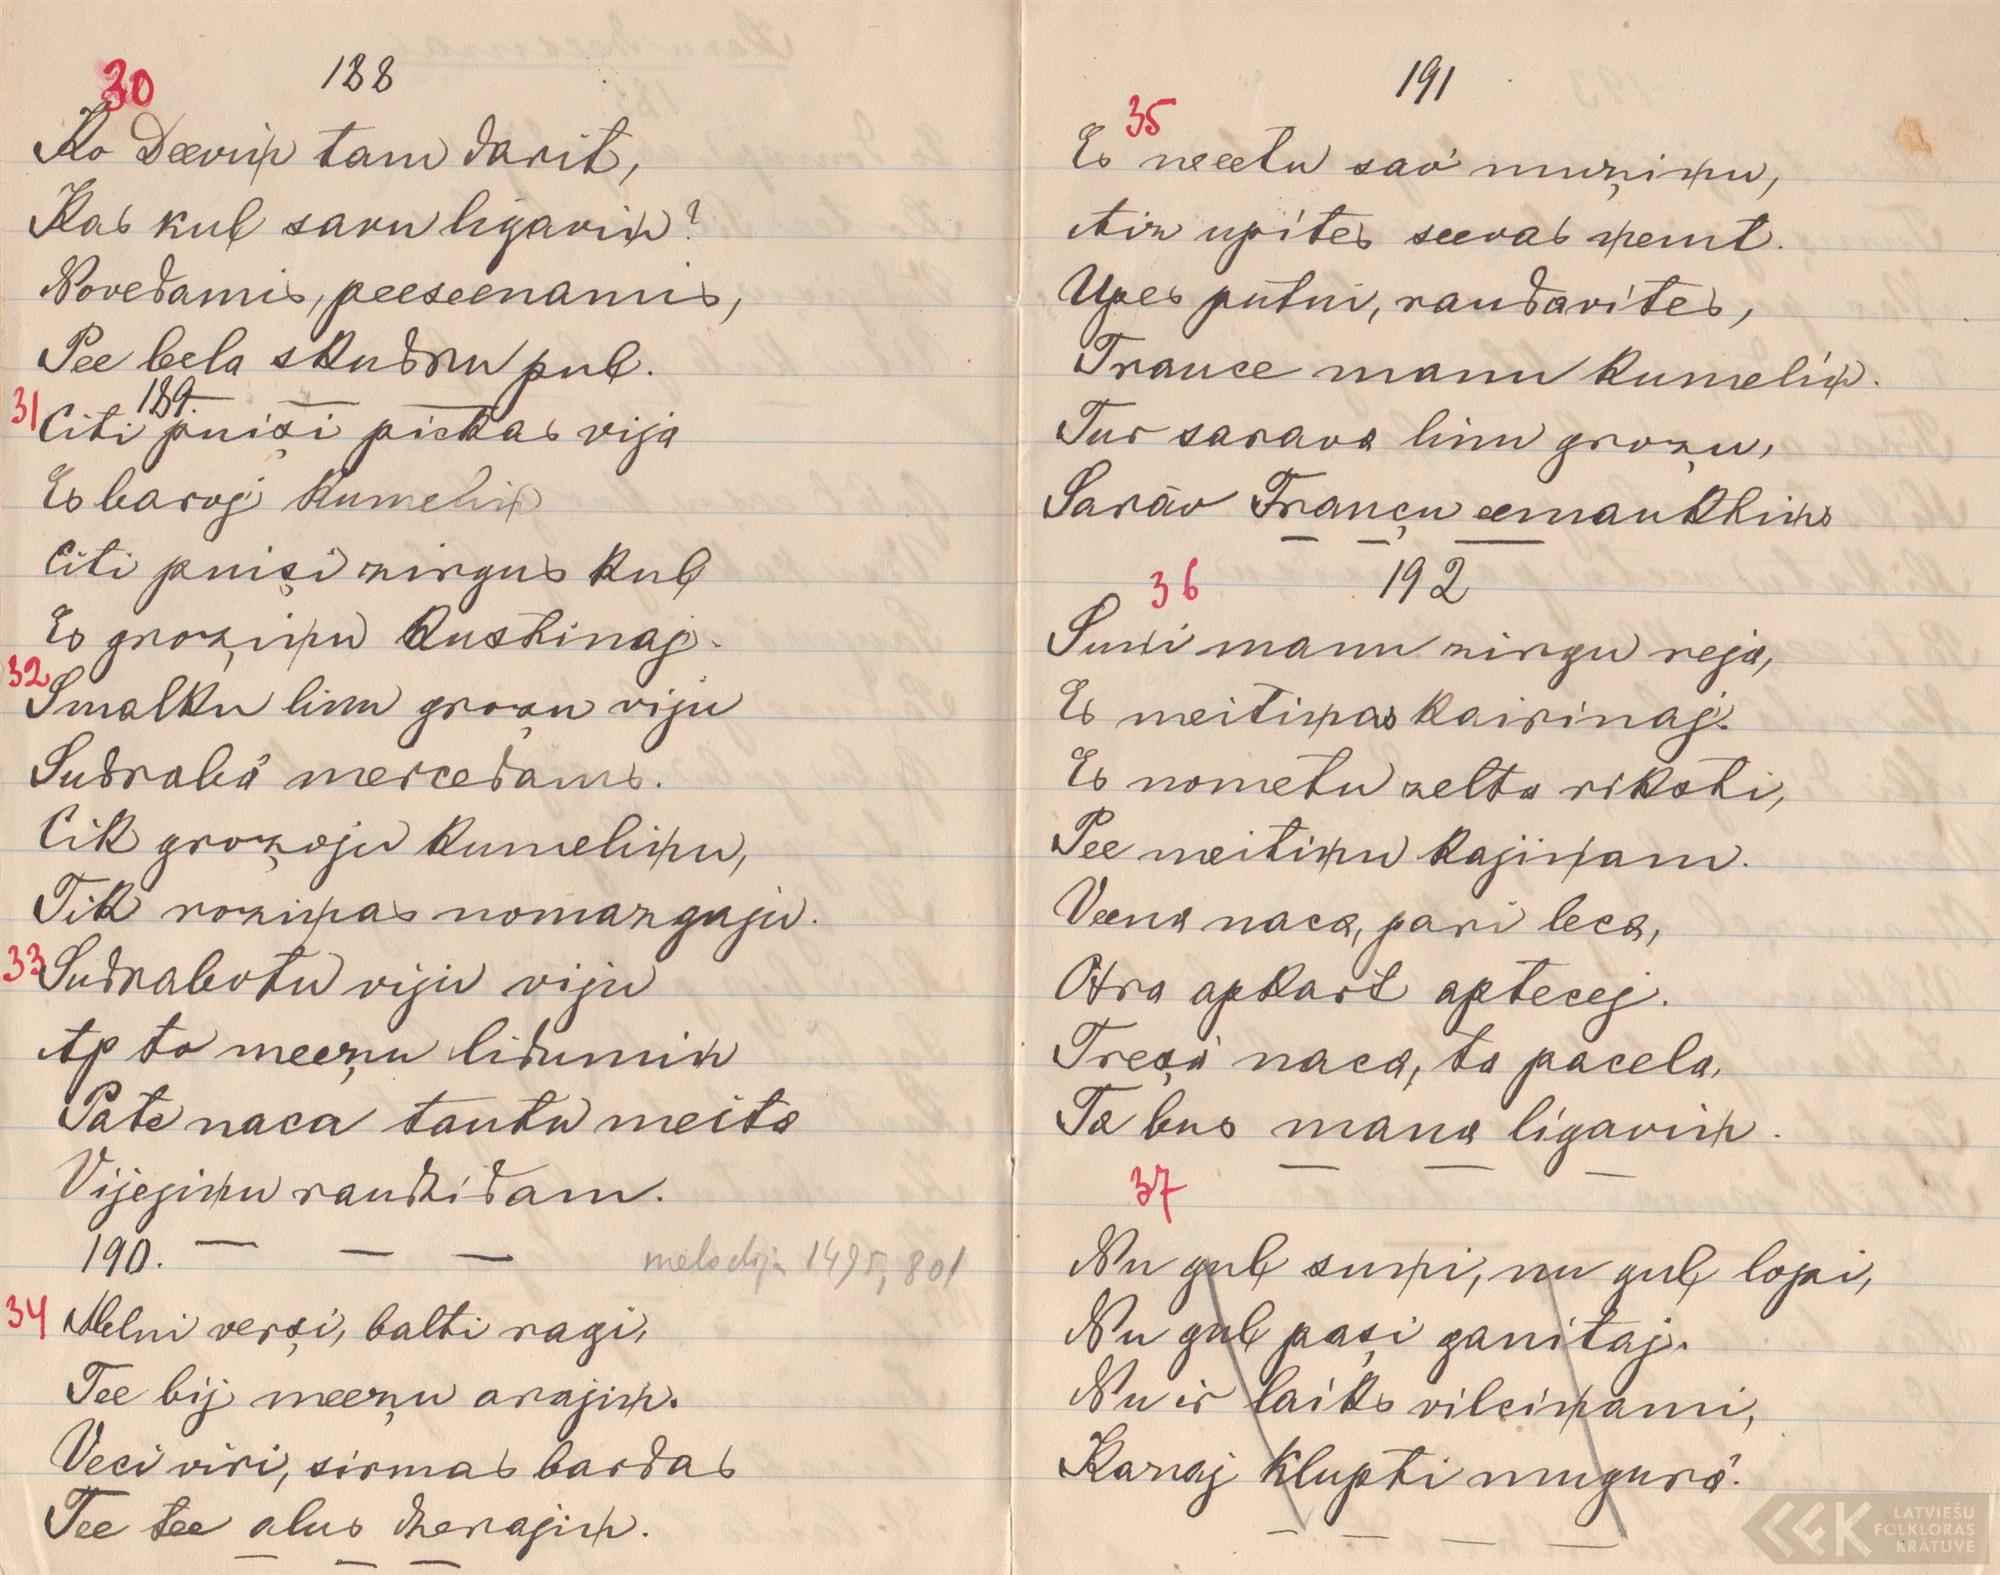 30 188
Ko Deeviņ tam darit,
Kas kuļ savu ligaviņ?
Novedamis, peeseenamis,
Pee leela skudru puļ.
31 189.
Citi puiși pickas vija
Es baroj kumeliņ
Citi puiși zirgus kuļ
Es groz̦iņu kustinaj.
32
Smalku linu groz̦u viju
Sudrabā mercedams.
Cik groz̦oju kumeliņu,
Tik roziņas nomazgaju.
33
Sudrabotu viju viju
Ap to meez̦u lidumiņ
Pate naca tautu meita
Vijejiņu raudzidam.
190. melodija 1495, 801
34
Melni verși, balti ragi,
Tee bij meez̦u arajiņ.
Veci viri, sirmas bardas
Tee tee alus dzerajiņ.
191
35
Es neetu savo muz̦iņu,
Aiz upites seevas ņemt.
Upes putni, raudavites,
Trauce manu kumeliņ.
Tur sarava linu groz̦u,
Sarāv Franc̦u eemauktiņs
36 192
Suņi manu zirgu reja,
Es meitiņas kairinaj.
Es nometu zelta riksti,
Pee meitiņu kajiņam.
Veena naca, pari leca,
Otra apkart aptecej.
Treșa naca, ta pacela,
Ta bus mana ligaviņ.
37
Nu guļ suņi, nu guļ lopi,
Nu guļ pași ganitaj.
Nu ir laiks vilciņami,
Kazaj klupti mugurā.
LATVIEŠU
FOLKLORAS
KRĀTUVE